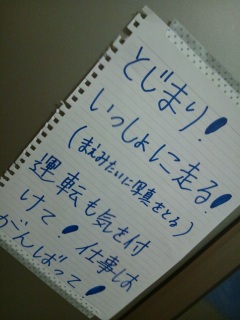 とじまり!
いっしょに走る!
(まえみたいに写真をとる)
運転も気を付
けて! 仕事しお
がんばって!